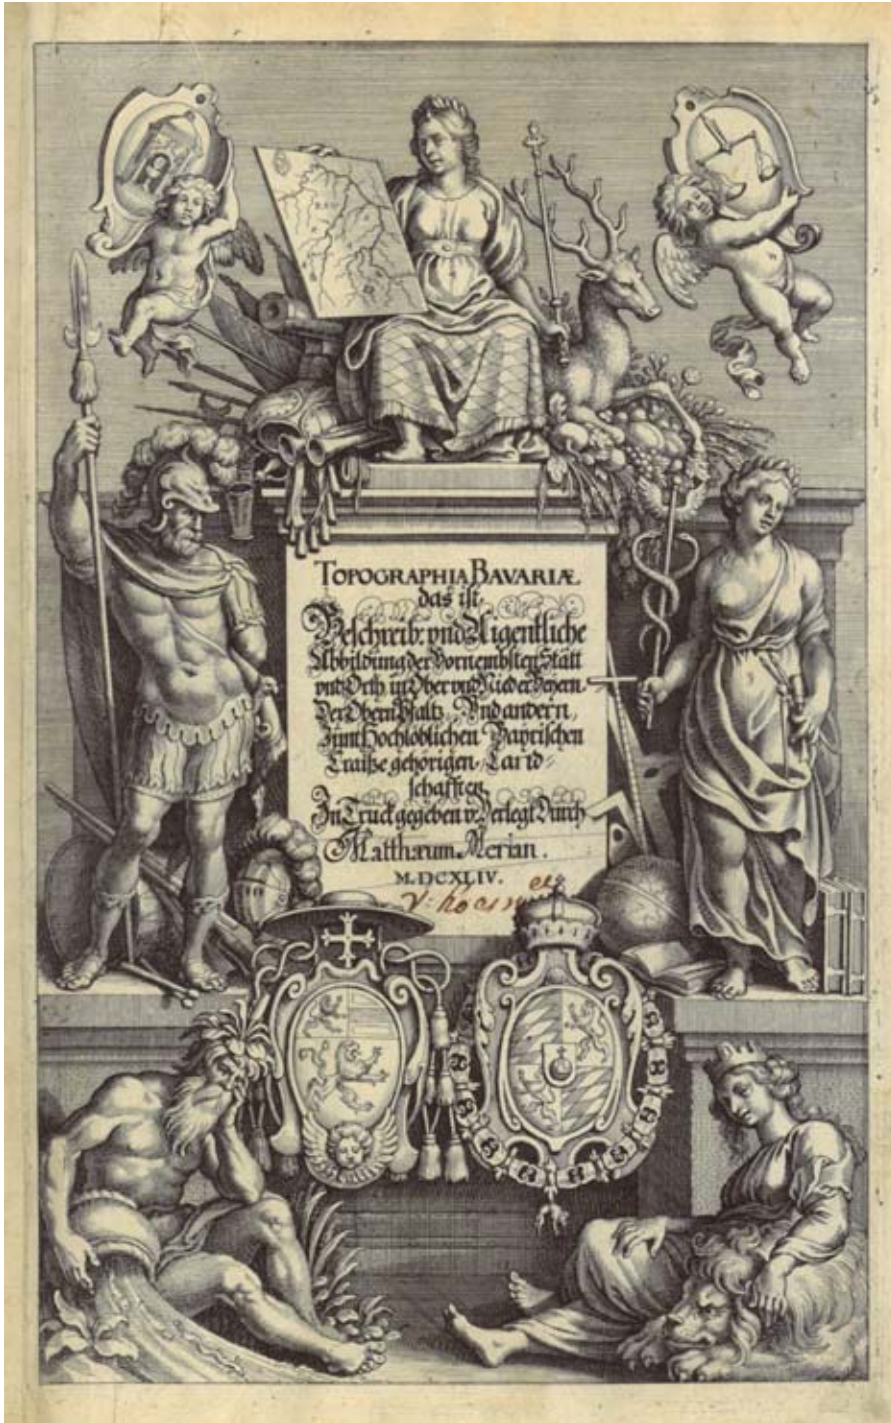 TOPOGRAPHIA BAVARIÆ
das ist
Beschreib: vnd Aigentliche
Abbildung der Vornembsten Stätt
vnd Orth, in Ober vnd Nieder Beyern,
Der Obern Pfaltz, Vnd andern,
Zum Hochlöblichen Bayrischen
Craiße gehörigen, Land-
schafften.
In Truck gegeben v: Verlegt Durch
Matthæum Merian.
M.DCXLIV.